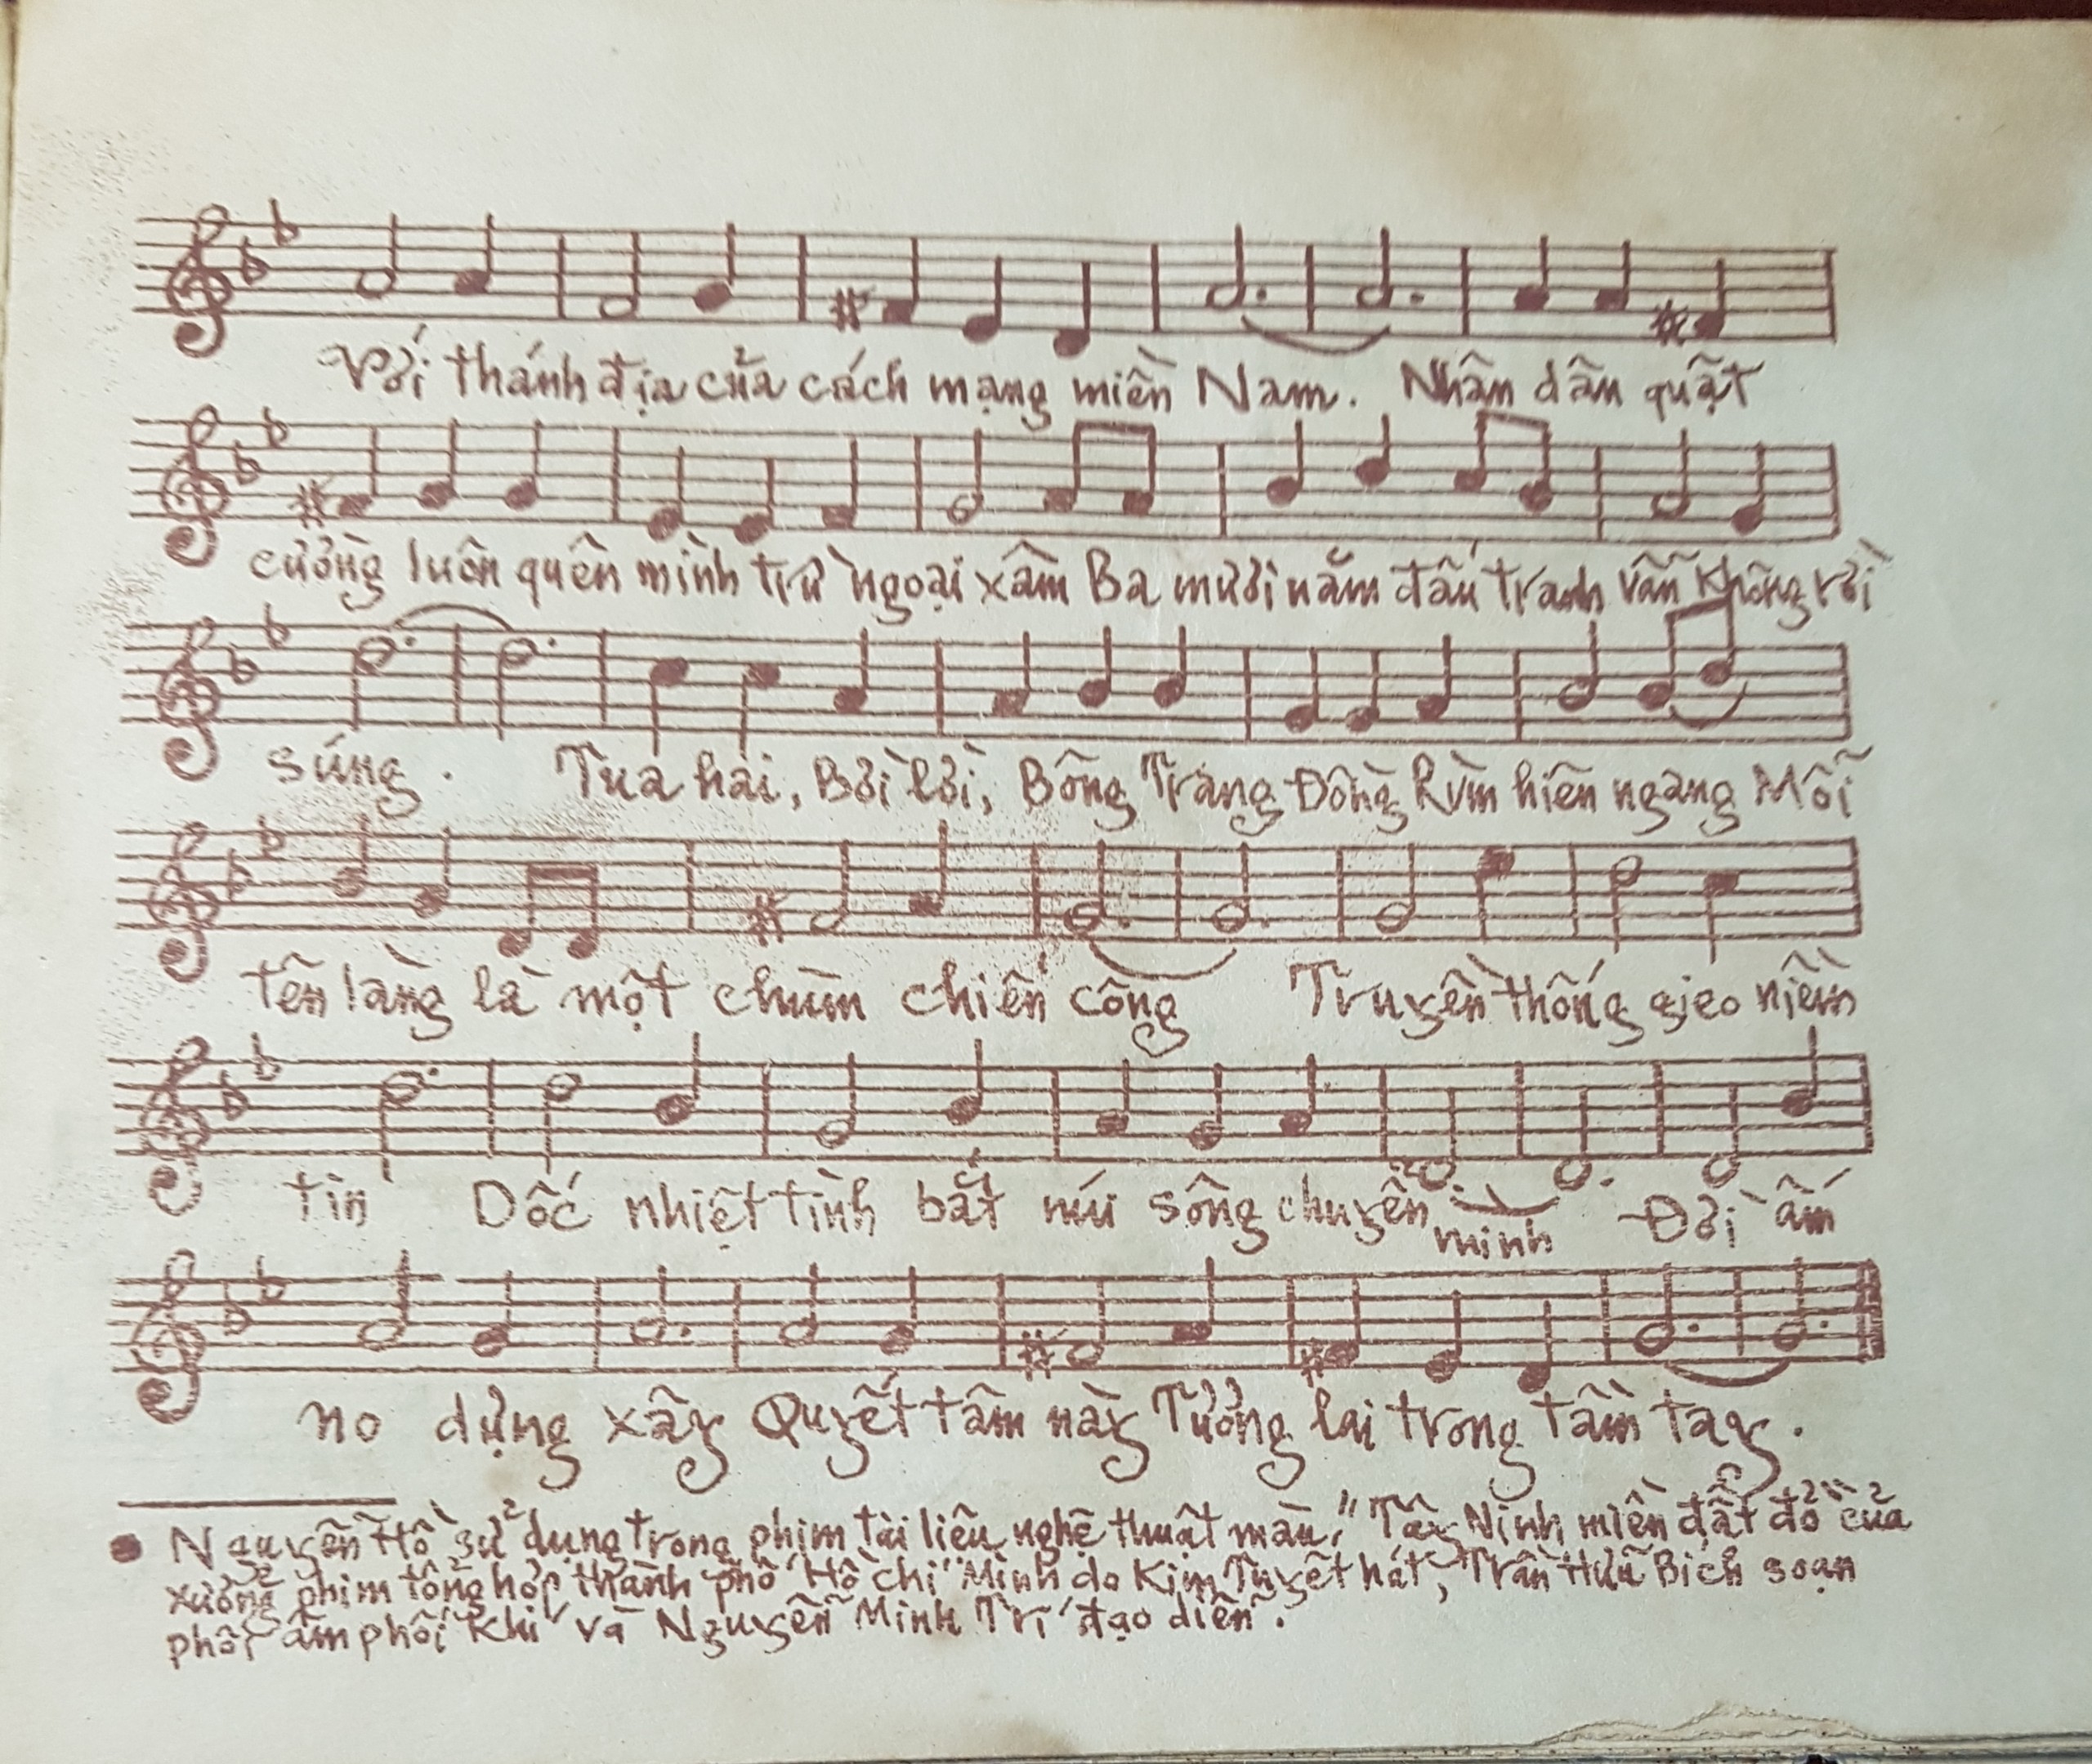 Với thánh địa của cách mạng miền Nam. Nhân dân quật
cường luôn quên mình trừ ngoại xâm Ba mươi năm đấu tranh vẫn không rời
súng. Tua hai, Bời lời, Bông Trang Đồng Rùm hiên ngang Mỗi
tên làng là một chùm chiến công Truyền thống gieo niềm
tin Dốc nhiệt tình bắt núi sông chuyển minh Đời ấm
no dựng xây Quyết tâm này Tương lai trong tầm tay.
Nguyễn Hồ sử dụng trong phim tài liệu nghệ thuật màu "Tây Ninh miền đất đỏ của
xưởng phim tổng hợp thành phố Hồ chí Minh do Kim Tuyết hát, Trần Hữu Bích soạn
phối âm phối khí và Nguyễn Minh Trí đạo diễn.